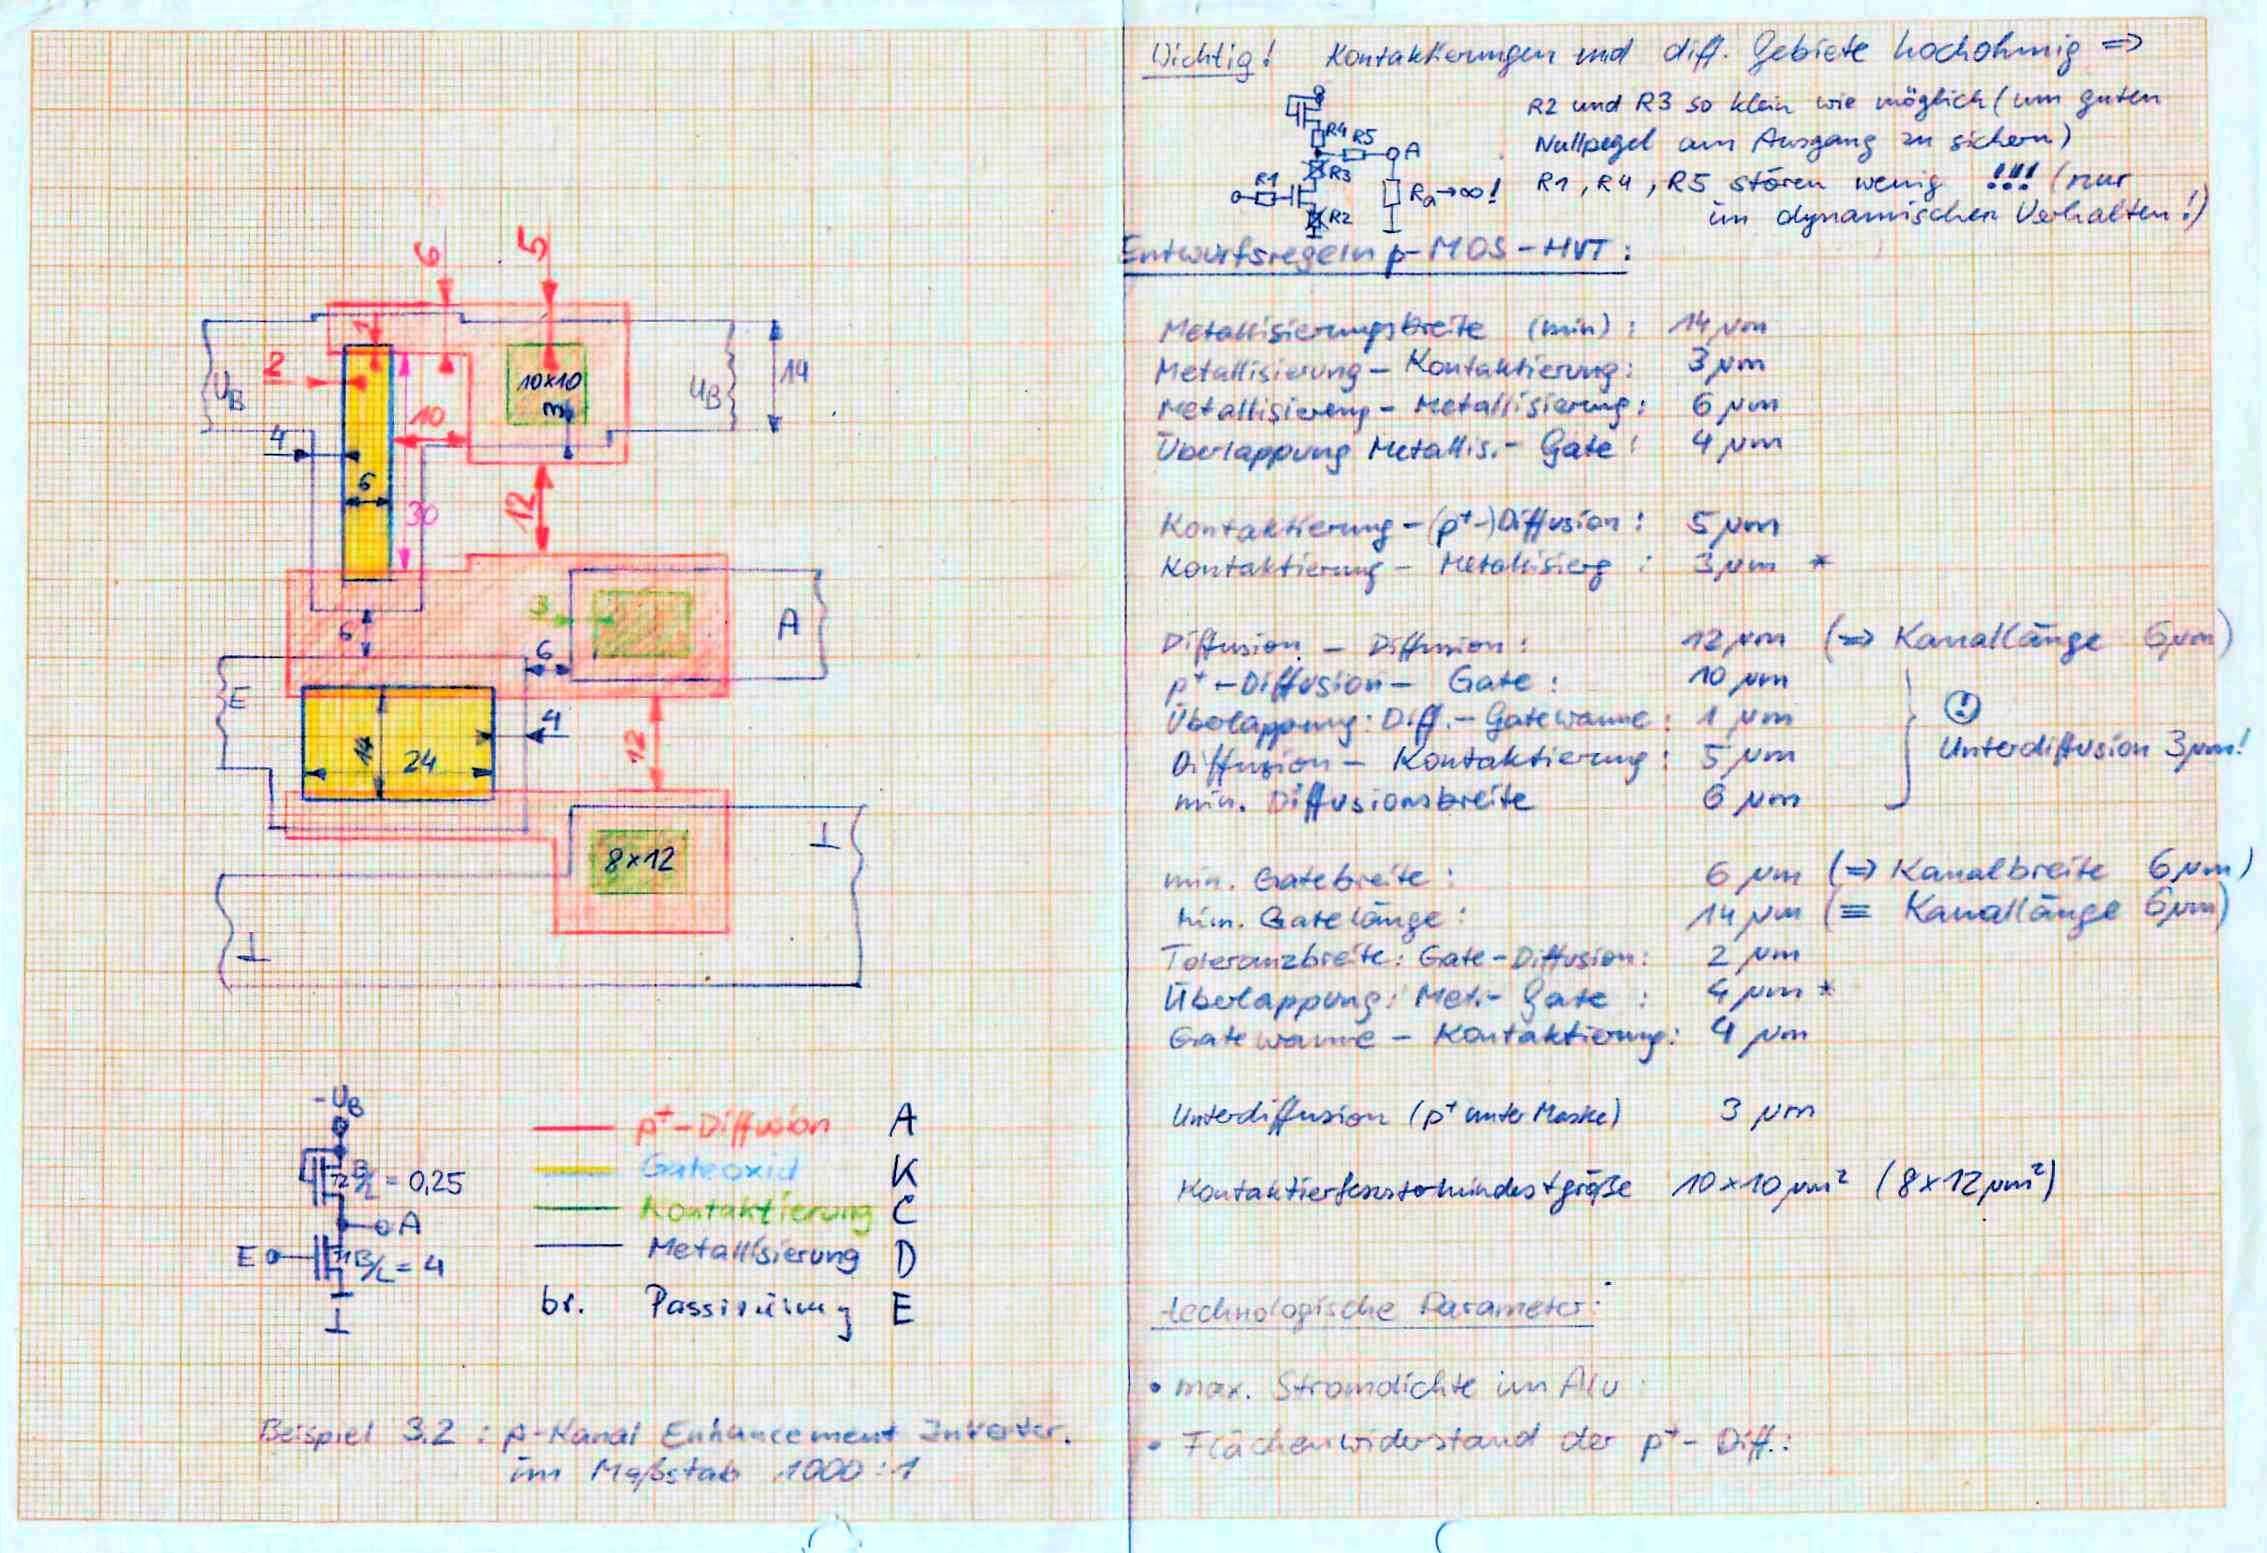 6
5
1
2
U_B
10x10
3
U_B
14
4
10
6
30
12
3
A
6
6
E
4
14
24
12
8x12
⊥
⊥
-U_B
T2 B/L = 0,25
A
E
T1 B/L = 4
⊥
p⁺-Diffusion A
Gateoxid K
Kontaktierung C
Metallisierung D
br. Passivierung E
Beispiel 3.2 : p-Kanal Enhancement Inverter.
im Maßstab 1000:1
Wichtig! Kontaktierungen und diff. Gebiete hochohmig ⇒
R2 und R3 so klein wie möglich (um guten
Nullpegel am Ausgang zu sichern)
R1, R4, R5 stören wenig !!! (nur
im dynamischen Verhalten!)
R4 R5 A
R3
R1
Ra→∞!
R2
Entwurfsregeln p-MOS-HVT:
Metallisierungsbreite (min): 14 µm
Metallisierung – Kontaktierung: 3 µm
Metallisierung – Metallisierung: 6 µm
Überlappung Metallis.- Gate: 4 µm
Kontaktierung – (p⁺-)Diffusion: 5 µm
Kontaktierung – Metallisierg: 3 µm *
Diffusion – Diffusion: 12 µm (⇒ Kanallänge 6µm)
p⁺-Diffusion – Gate: 10 µm
Überlappung: Diff.- Gatewanne: 1 µm
Diffusion – Kontaktierung: 5 µm
min. Diffusionsbreite 6 µm
!
Unterdiffusion 3µm!
min. Gatebreite: 6 µm (⇒ Kanalbreite 6µm)
min. Gatelänge: 14 µm (≡ Kanallänge 6µm)
Toleranzbreite: Gate-Diffusion: 2 µm
Überlappung: Met.- Gate: 4 µm *
Gatewanne – Kontaktierung: 4 µm
Unterdiffusion (p⁺ unter Maske) 3 µm
Kontaktierfenstermindestgröße 10x10 µm² (8x12 µm²)
technologische Parameter:
• max. Stromdichte im Alu:
• Flächenwiderstand der p⁺- Diff.: